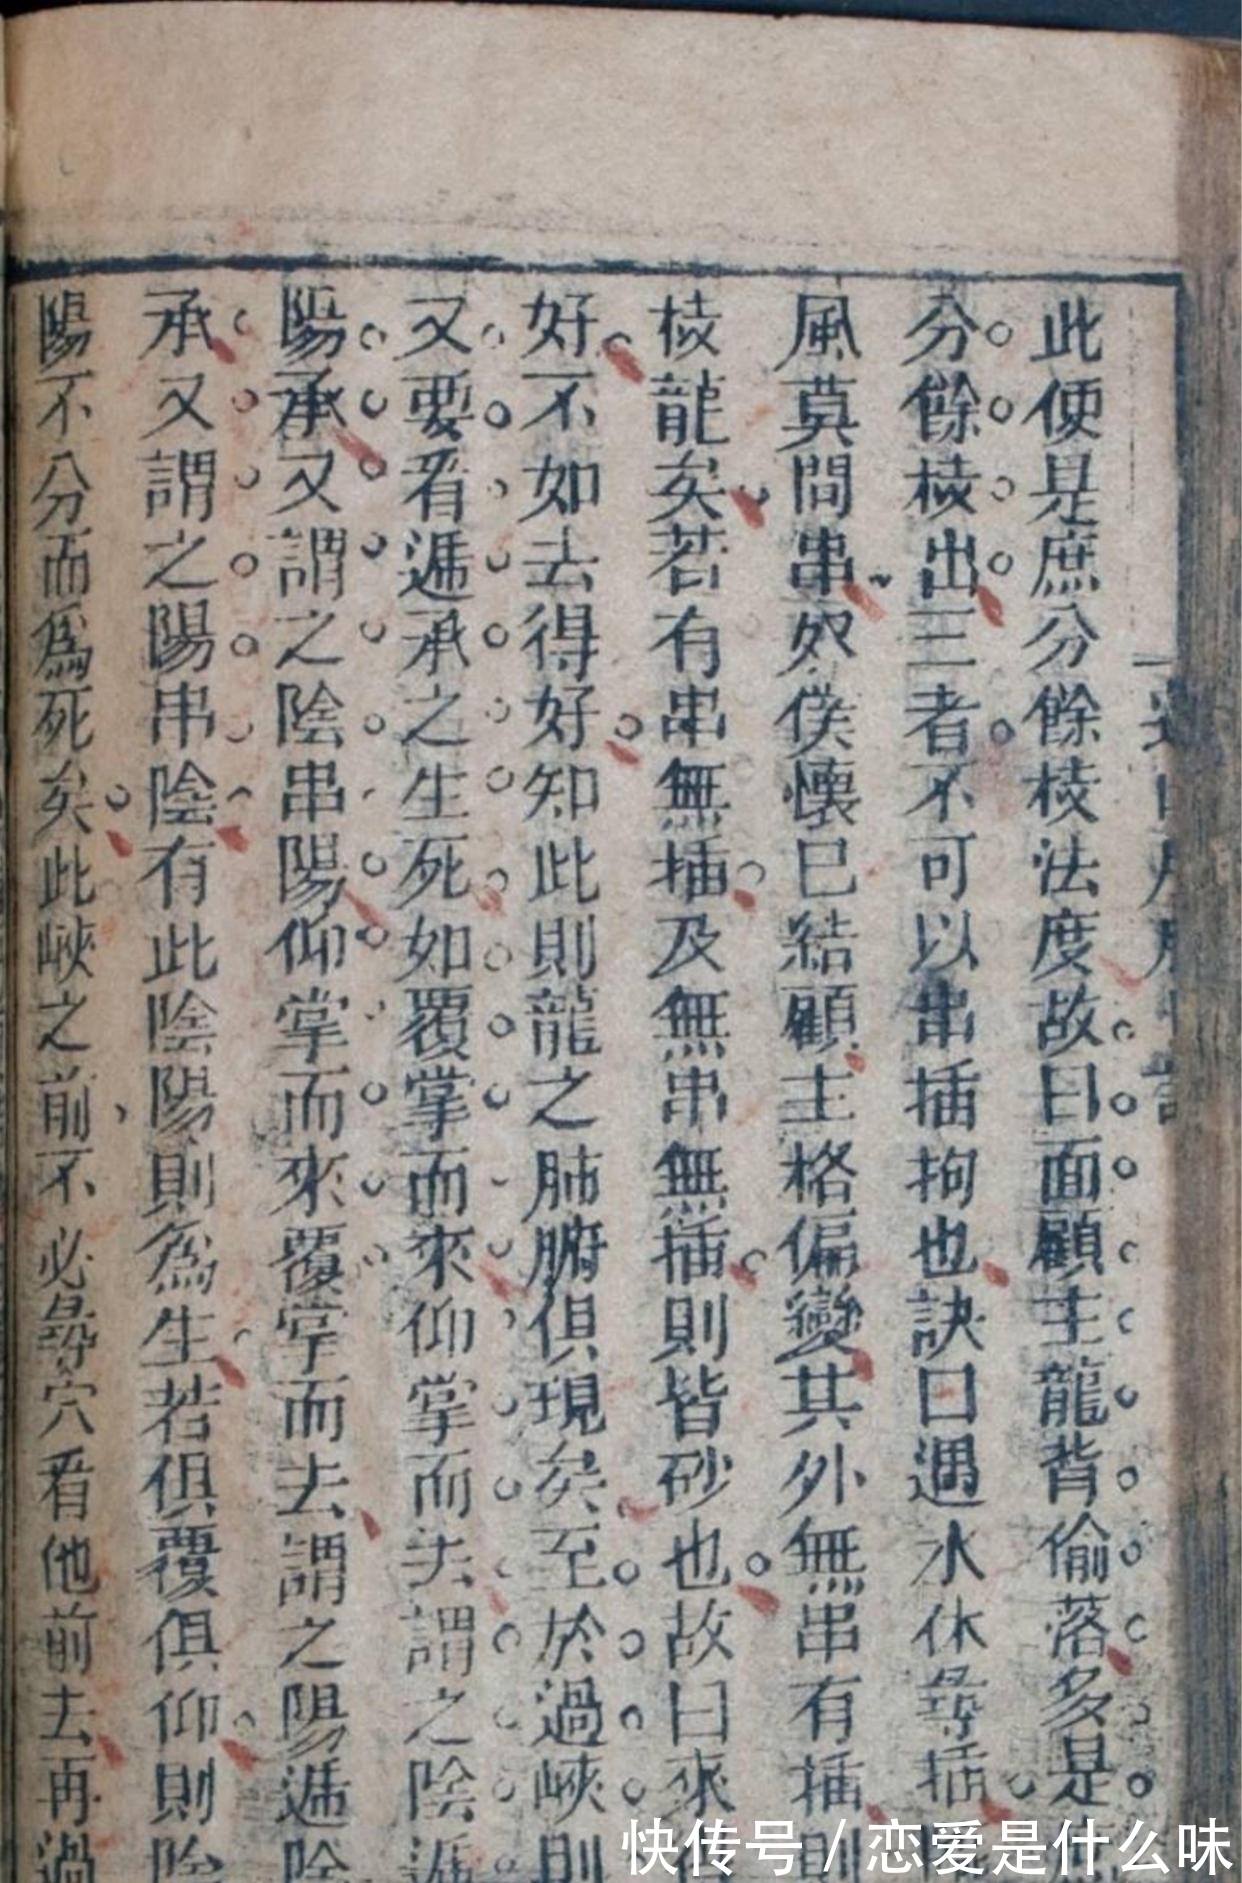 此便是庶分餘枝法度故曰面顧主龍背偷落多是
分餘枝出三者不可以串插拘也訣曰遇水休尋插
風莫問串奴僕懷巳結顧主格偏變其外無串有插則
枝龍矣若有串無插及無串無插則皆砂也故曰來
好不如去得好知此則龍之肺腑俱現矣至於過峽則
又要看遞承之生死如覆掌而來仰掌而去謂之陰遞
陽承又謂之陰串陽仰掌而來覆掌而去謂之陽遞陰
承又謂之陽串陰有此陰陽則為生若俱覆俱仰則陰
陽不分而為死矣此峽之前不必尋穴看他前去再過
快传号/恋爱是什么味